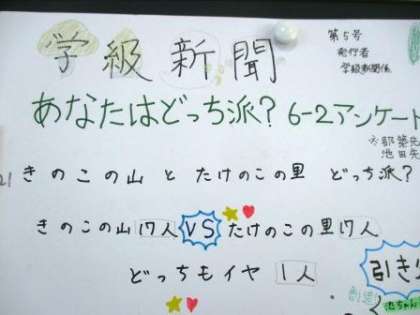 学級新聞
第5号
発行者
学級新聞係
あなたはどっち派?6-2アンケート
池田先
きのこの山とたけのこの里 どっち派?
きのこの山17人VSたけのこの里17人
どっちもイヤ 1人
引き